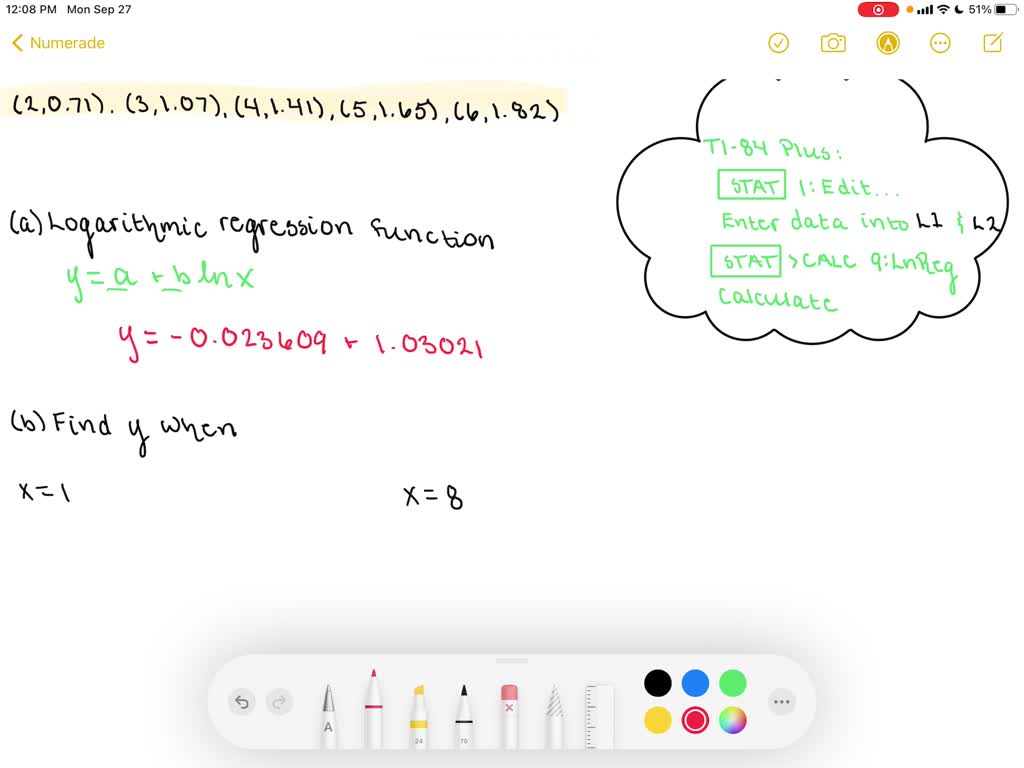 12:08 PM Mon Sep 27 51%
Numerade
(2,0.71), (3,1.07), (4,1.41), (5,1.65), (6,1.82)
TI-84 Plus:
STAT 1:Edit...
Enter data into L1 & L2
STAT >CALC 9:LnReg
Calculate
(a) Logarithmic regression function
y = a + b ln x
y = -0.023609 + 1.03021
(b) Find y when
x = 1 x = 8
A 24 70